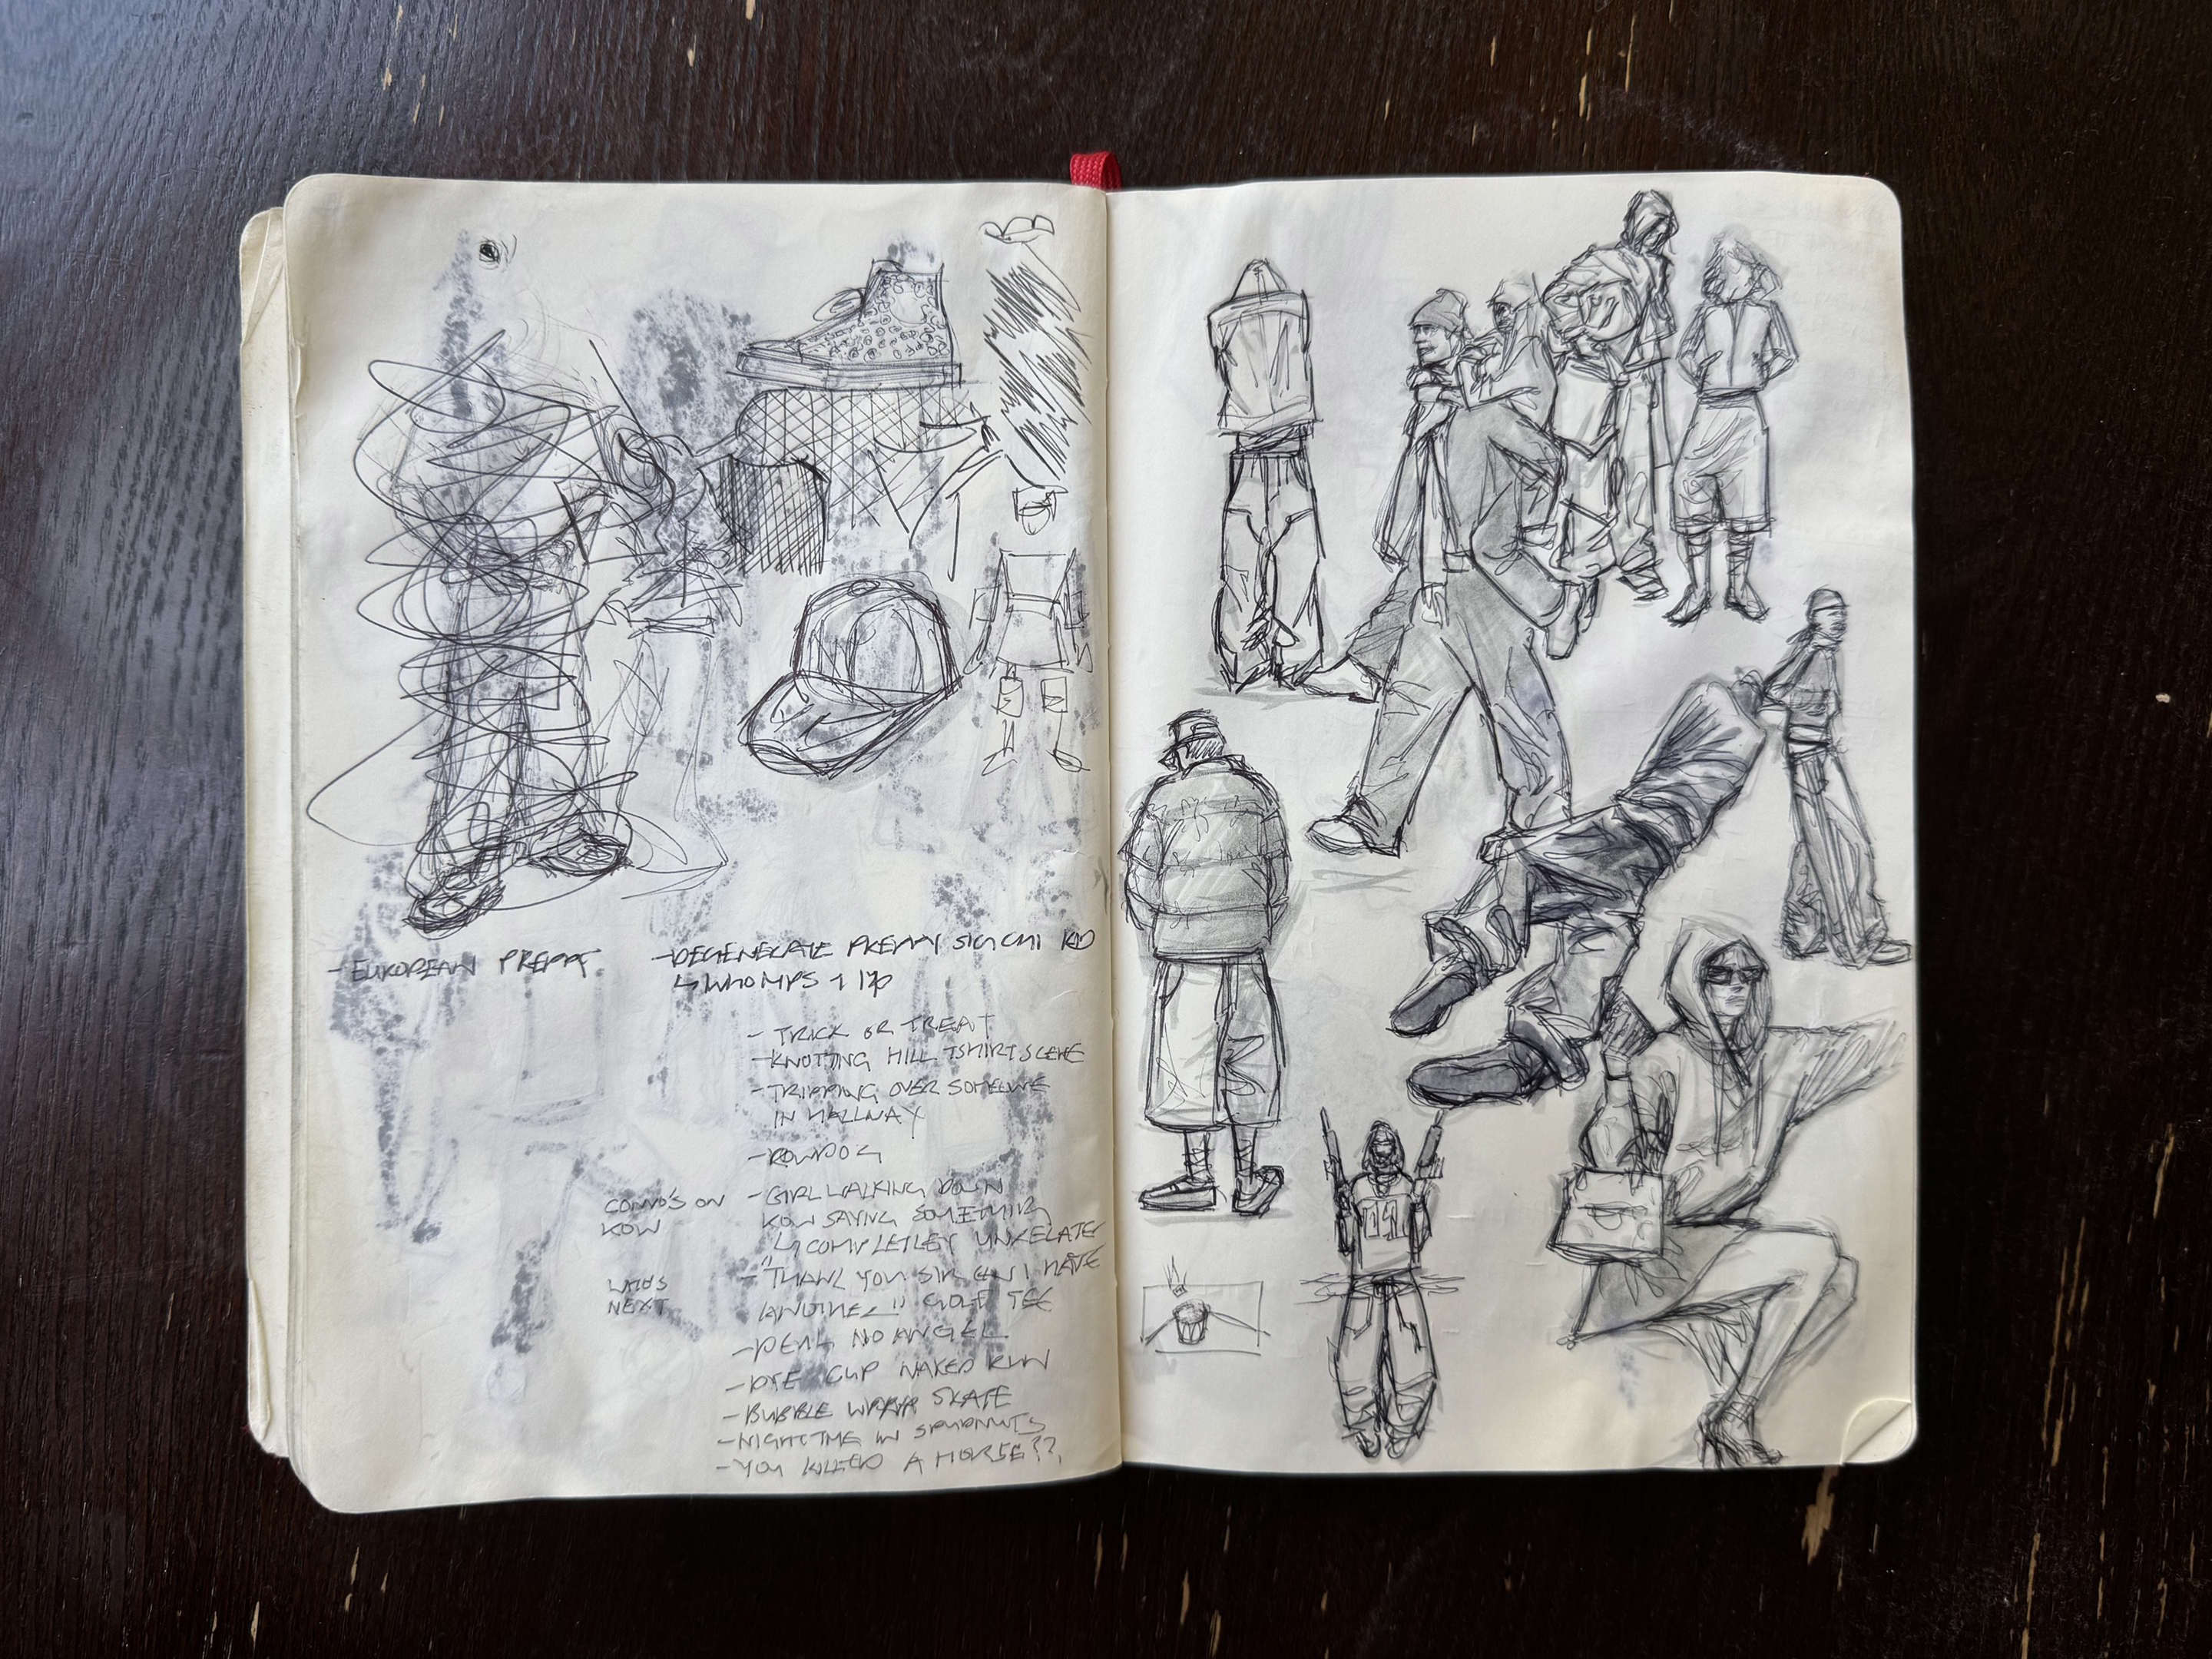 - EUROPEAN PREPPY
- DEGENERATE KID
↳ WHOMPS
- TRICK OR TREAT
- KNOTTING HILL TSHIRT SCENE
- TRIPPING OVER SOMEONE
IN HALLWAY
- ROWDOG
CONVO'S ON
ROW
- GIRL WALKING DOWN
ROW SAYING SOMETHING
↳ COMPLETLEY UNRELATED
WHO'S
NEXT
- "THANK YOU SIR CAN I HAVE
ANOTHER" GOLF TEE
- DEAL NO ANGEL
- DYE CUP NAKED RUN
- BUBBLE WRAP SKATE
- NIGHT TIME IN SPUDNUTS
- YOU KILLED A HORSE??
19